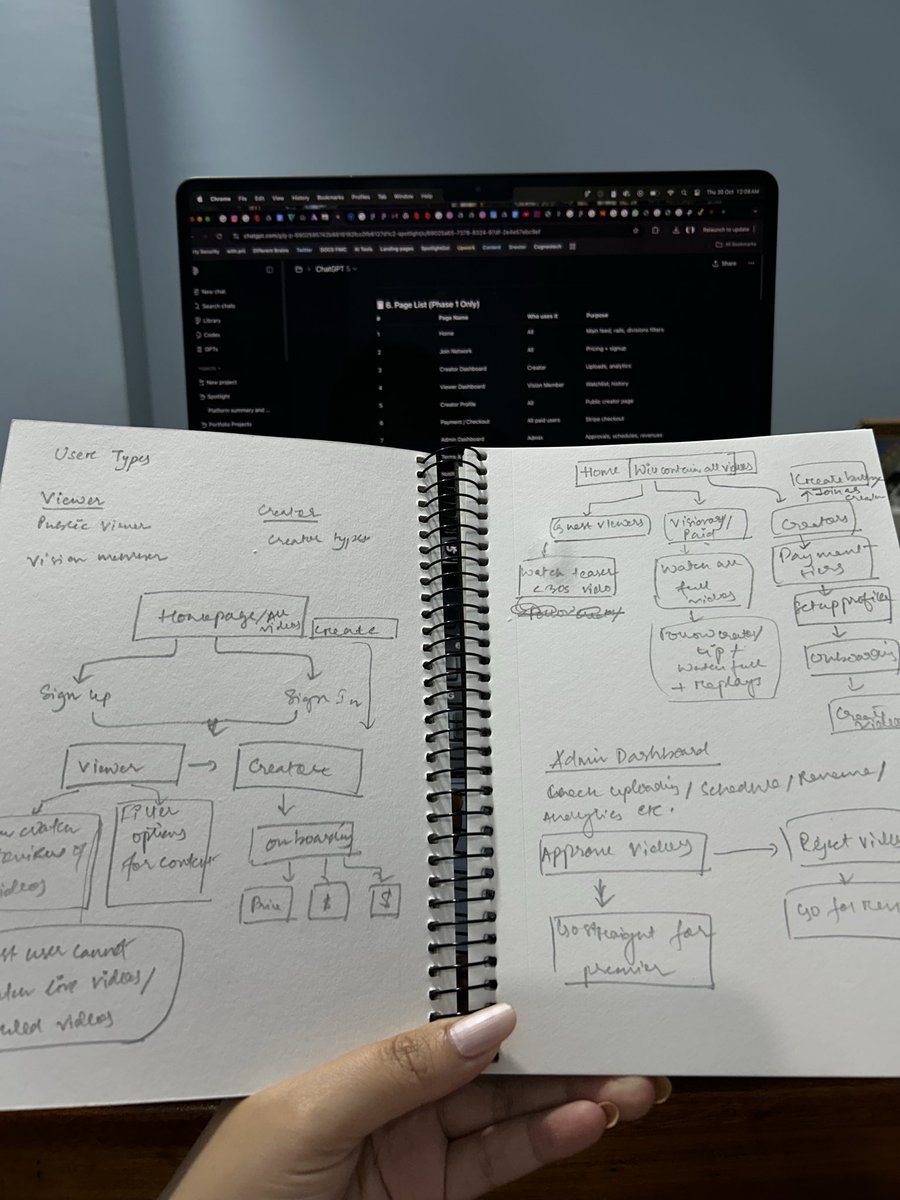 Chrome File Edit View History Bookmarks Profiles Tab Window Help
Thu 30 Oct 12:08AM
Relaunch to update
Different Brains Twitter AI Tools Landing pages Upwork Content
All Bookmarks
ChatGPT 5
Share
New chat
Search chats
Library
Codex
GPTs
New project
Spotlight
Platform summary and ...
Portfolio Projects
6. Page List (Phase 1 Only)
# Page Name Who uses it Purpose
1 Home All Main feed, rails, divisions filters
2 Join Network All Pricing + signup
3 Creator Dashboard Creator Uploads, analytics
4 Viewer Dashboard Vision Member Watchlist, history
5 Creator Profile All Public creator page
6 Payment / Checkout All paid users Stripe checkout
7 Admin Dashboard Admin Approvals, schedules, revenues
User Types
Viewer
Public Viewer
Vision member
Creator
Creator types
Homepage/All videos
Create
Sign up
Sign In
Viewer
Creator
Filter
options
for content
onboarding
Price
$
$
videos
user cannot
live videos/
videos
Home
Will contain all videos
Create button
Join as
creator
Guest viewers
Watch teaser
<30s video
Visionary/
Paid
Watch all
full
videos
Follow creator/
tip +
watch full
+ replays
Creators
Payment
tiers
Setup profile
onboarding
Create
video
Admin Dashboard
Check uploading / Schedule / Revenue /
Analytics etc.
Approve videos
Go straight for
premier
Reject video
Go for